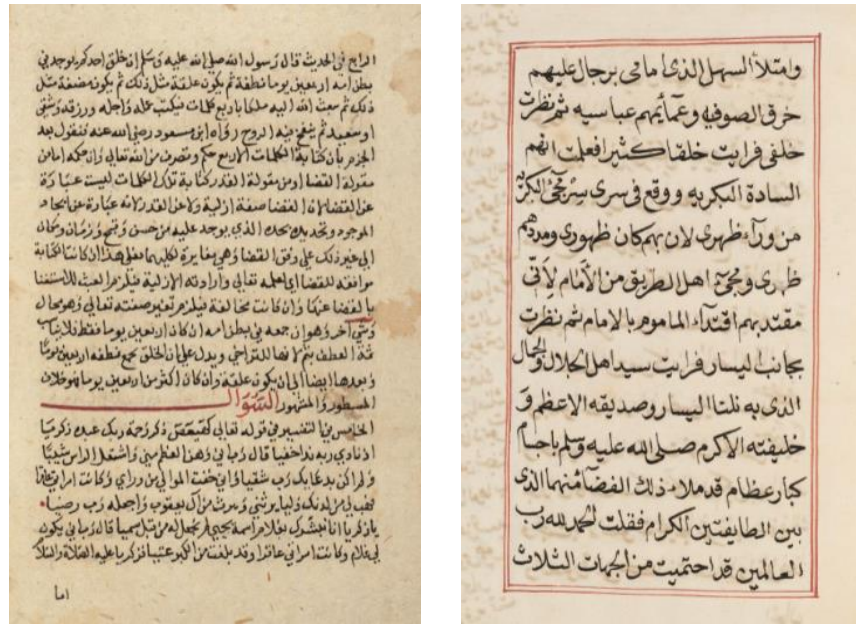 الرابع في الحديث قال رسول الله صلى الله عليه وسلم ان خلق احدكم يوجد في
بطن امه اربعين يوما نطفة ثم يكون علقة مثل ذلك ثم يكون مضغة مثل
ذلك ثم يبعث الله اليه ملكا باربع كلمات فيكتب عمله واجله ورزقه وشقي
او سعيد ثم ينفخ فيه الروح رواه ابن مسعود رضي الله عنه فنقول بعد
الجزم بان كتابة الكلمات الاربع حكم وتصرف من الله تعالى وان حكمه اما من
مقولة القضا او من مقولة القدر كتابة تلك الكلمات ليست عبارة
عن القضا لان القضا صفة ازلية ولا عن القدر لانه عبارة عن ايجاد
الموجود وتحديده بحده الذي يوجد عليه من حسن وقبح وزمان ومكان
الى غير ذلك على وفق القضا وهي مغايرة لكليهما فعلى هذا ان كانت الكتابة
موافقه للقضا اي لعلمه تعالى وارادته الازلية فيلزم العبث للاستغنا
بالقضا عنها وان كانت مخالفة فيلزم تغير صفته تعالى وهو محال
وشي آخر وهو ان جمعه في بطن امه ان كان اربعين يوما فقط فلا يناسب
العطف بثم لانها للتراخي ويدل على ان الخلق يجمع نطفه اربعين يوما
وبعدها ايضا الى ان يكون علقة وان كان اكثر من اربعين يوما فهو خلاف
المسطور والمشهور السؤال
الخامس في التفسير في قوله تعالى كهيعص ذكر رحمة ربك عبده زكريا
اذ نادى ربه ندا خفيا قال رب اني وهن العظم مني واشتعل الراس شيبا
ولم اكن بدعايك رب شقيا واني خفت الموالي من وراي وكانت امراتي عاقرا
فهب لي من لدنك وليا يرثني ويرث من آل يعقوب واجعله رب رضيا
يا زكريا انا نبشرك بغلام اسمه يحيى لم نجعل له من قبل سميا قال رب اني يكون
لي غلام وكانت امراتي عاقرا وقد بلغت من الكبر عتيا فزكريا عليه الصلاة والسلام
اما
وامتلأ السهل الذى امامى برجال عليهم
خرق الصوفيه وعمائمهم عباسيه ثم نظرت
خلفى فرايت خلقا كثيرا فعلمت انهم
السادة البكريه ووقع فى سرى سر مجئ البكريه
من ورآء ظهرى لان بهم كان ظهورى ومددهم
ظهرى ومجئ اهل الطريق من الأمام لأنى
مقتد بهم اقتدآء الماموم بالامام ثم نظرت
بجانب اليسار فرايت سيد اهل الجلال والجمال
الذى به نلنا اليسار وصديقه الاعظم و
خليفته الاكرم صلى الله عليه وسلم باجسام
كبار عظام قد ملاء ذلك الفضآء منهما الذى
بين الطايفتين الكرام فقلت الحمد لله رب
العالمين قد احتميت من الجهات الثلاث